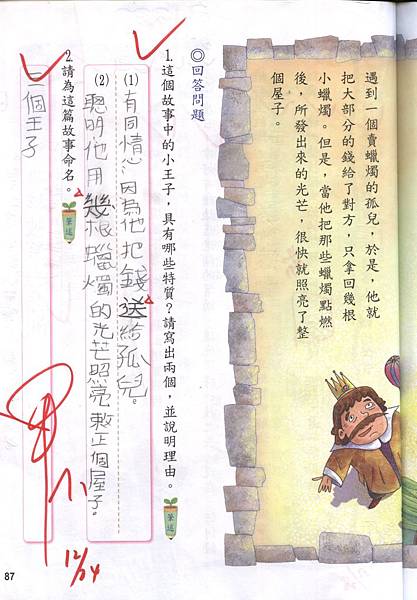 遇到一個賣蠟燭的孤兒，於是，他就
把大部分的錢給了對方，只拿回幾根
小蠟燭。但是，當他把那些蠟燭點燃
後，所發出來的光芒，很快就照亮了整
個屋子。
◎回答問題
1.這個故事中的小王子，具有哪些特質？請寫出兩個，並說明理由。
筆述
(1)有同情心因為他把錢送給孤兒。
(2)聰明他用幾根蠟燭的光芒照亮整個屋子。
2.請為這篇故事命名。
筆述
三個王子
12/24
87